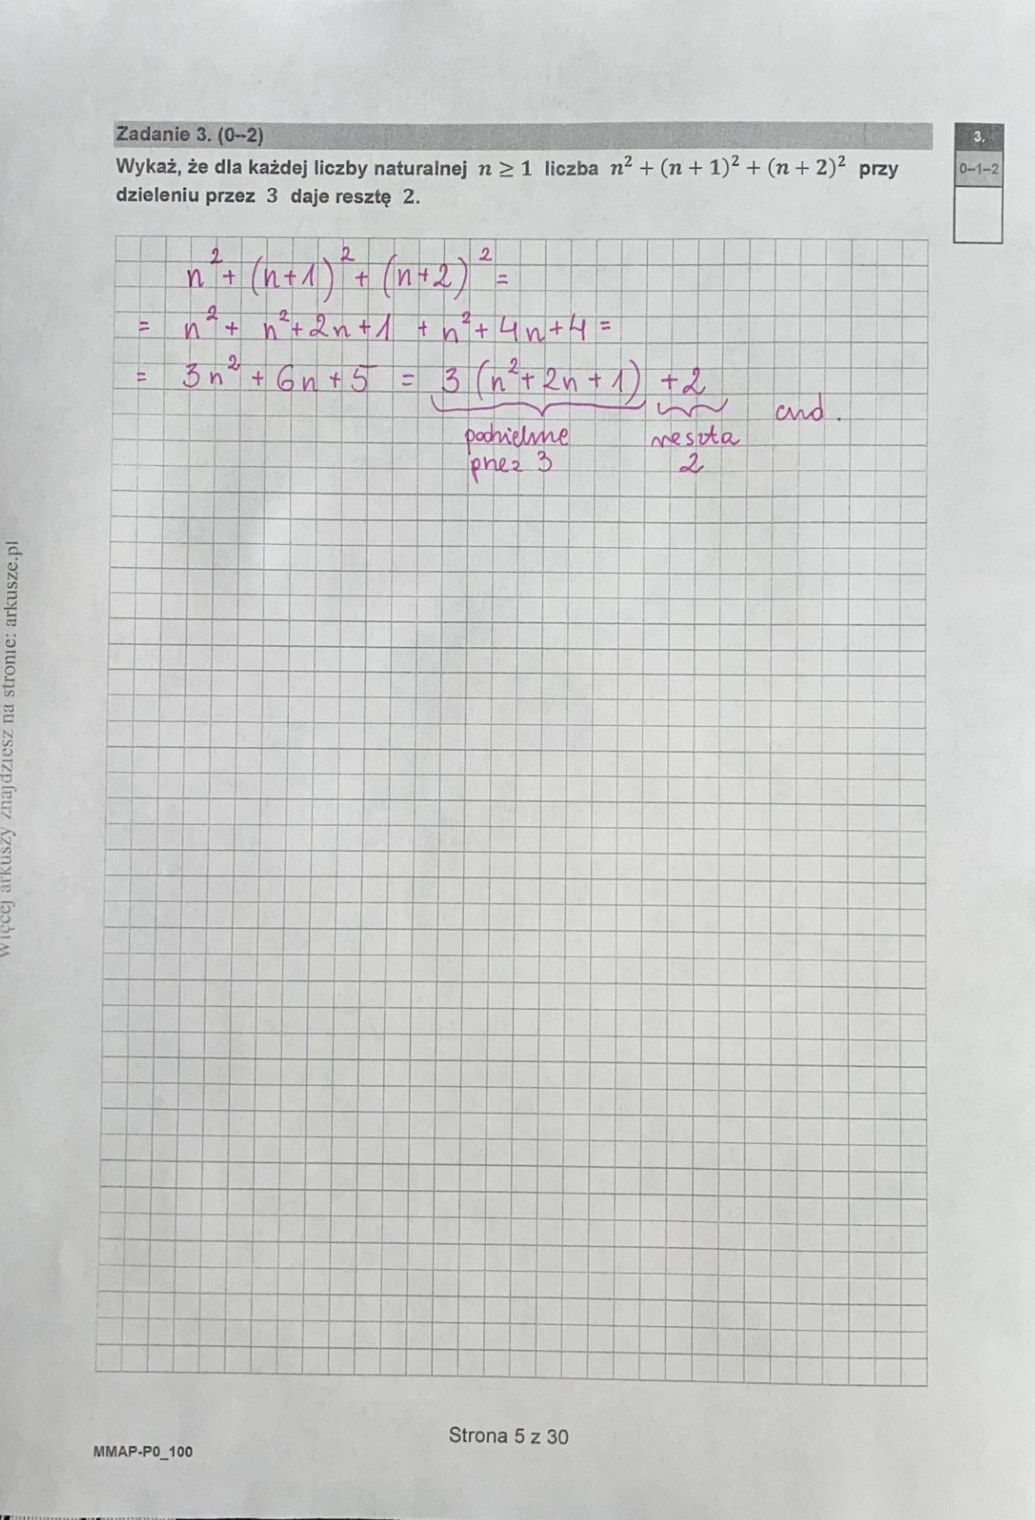 Zadanie 3. (0–2)
3.
Wykaż, że dla każdej liczby naturalnej n ≥ 1 liczba n² + (n + 1)² + (n + 2)² przy
0–1–2
dzieleniu przez 3 daje resztę 2.
n² + (n+1)² + (n+2)² =
= n² + n² + 2n + 1 + n² + 4n + 4 =
= 3n² + 6n + 5 = 3 (n² + 2n + 1) + 2
cnd.
podzielne
przez 3
reszta
2
Więcej arkuszy znajdziesz na stronie: arkusze.pl
Strona 5 z 30
MMAP-P0_100